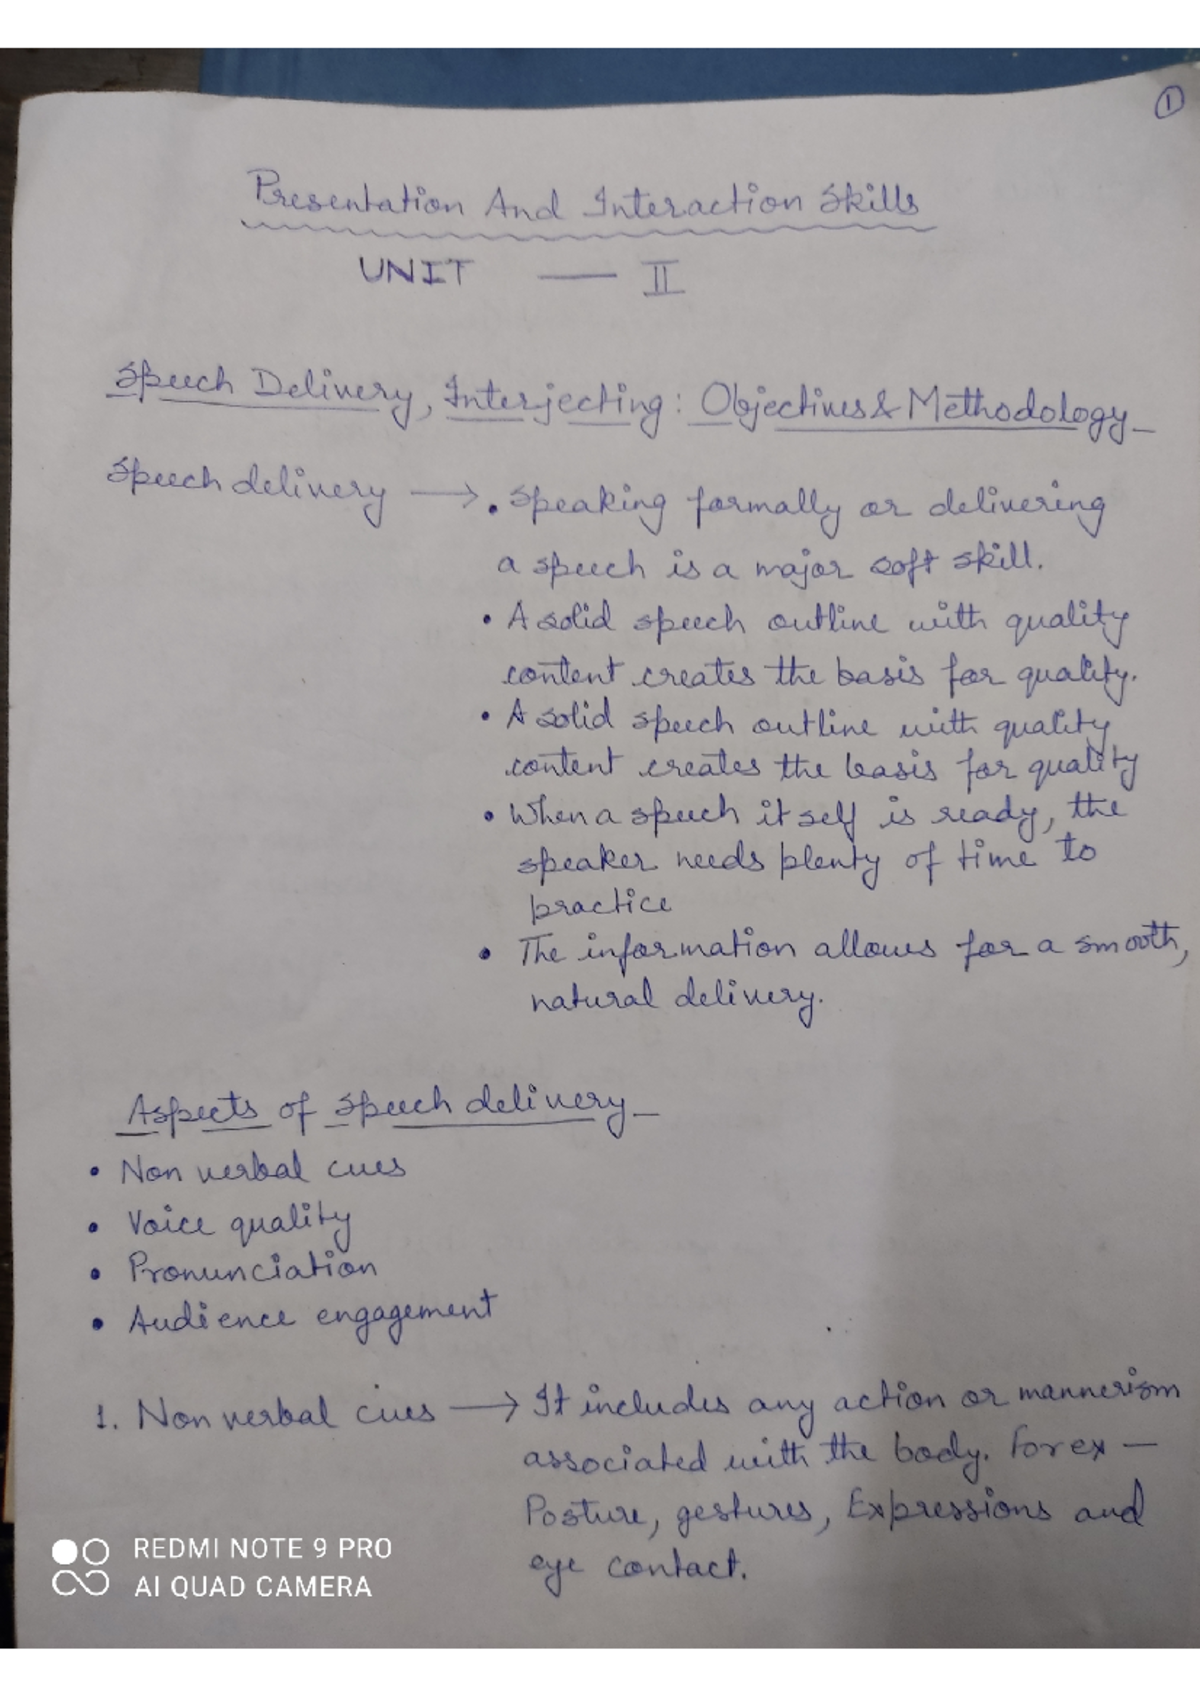 1
Presentation And Interaction Skills
UNIT — II
Speech Delivery, Interjecting: Objectives & Methodology
Speech delivery → • Speaking formally or delivering
a speech is a major soft skill.
• A solid speech outline with quality
content creates the basis for quality.
• A solid speech outline with quality
content creates the basis for quality
• When a speech itself is ready, the
speaker needs plenty of time to
practice
• The information allows for a smooth,
natural delivery.
Aspects of Speech delivery
• Non verbal cues
• Voice quality
• Pronunciation
• Audience engagement
1. Non verbal cues → It includes any action or mannerism
associated with the body. For ex —
Posture, gestures, Expressions and
eye contact.
REDMI NOTE 9 PRO
AI QUAD CAMERA